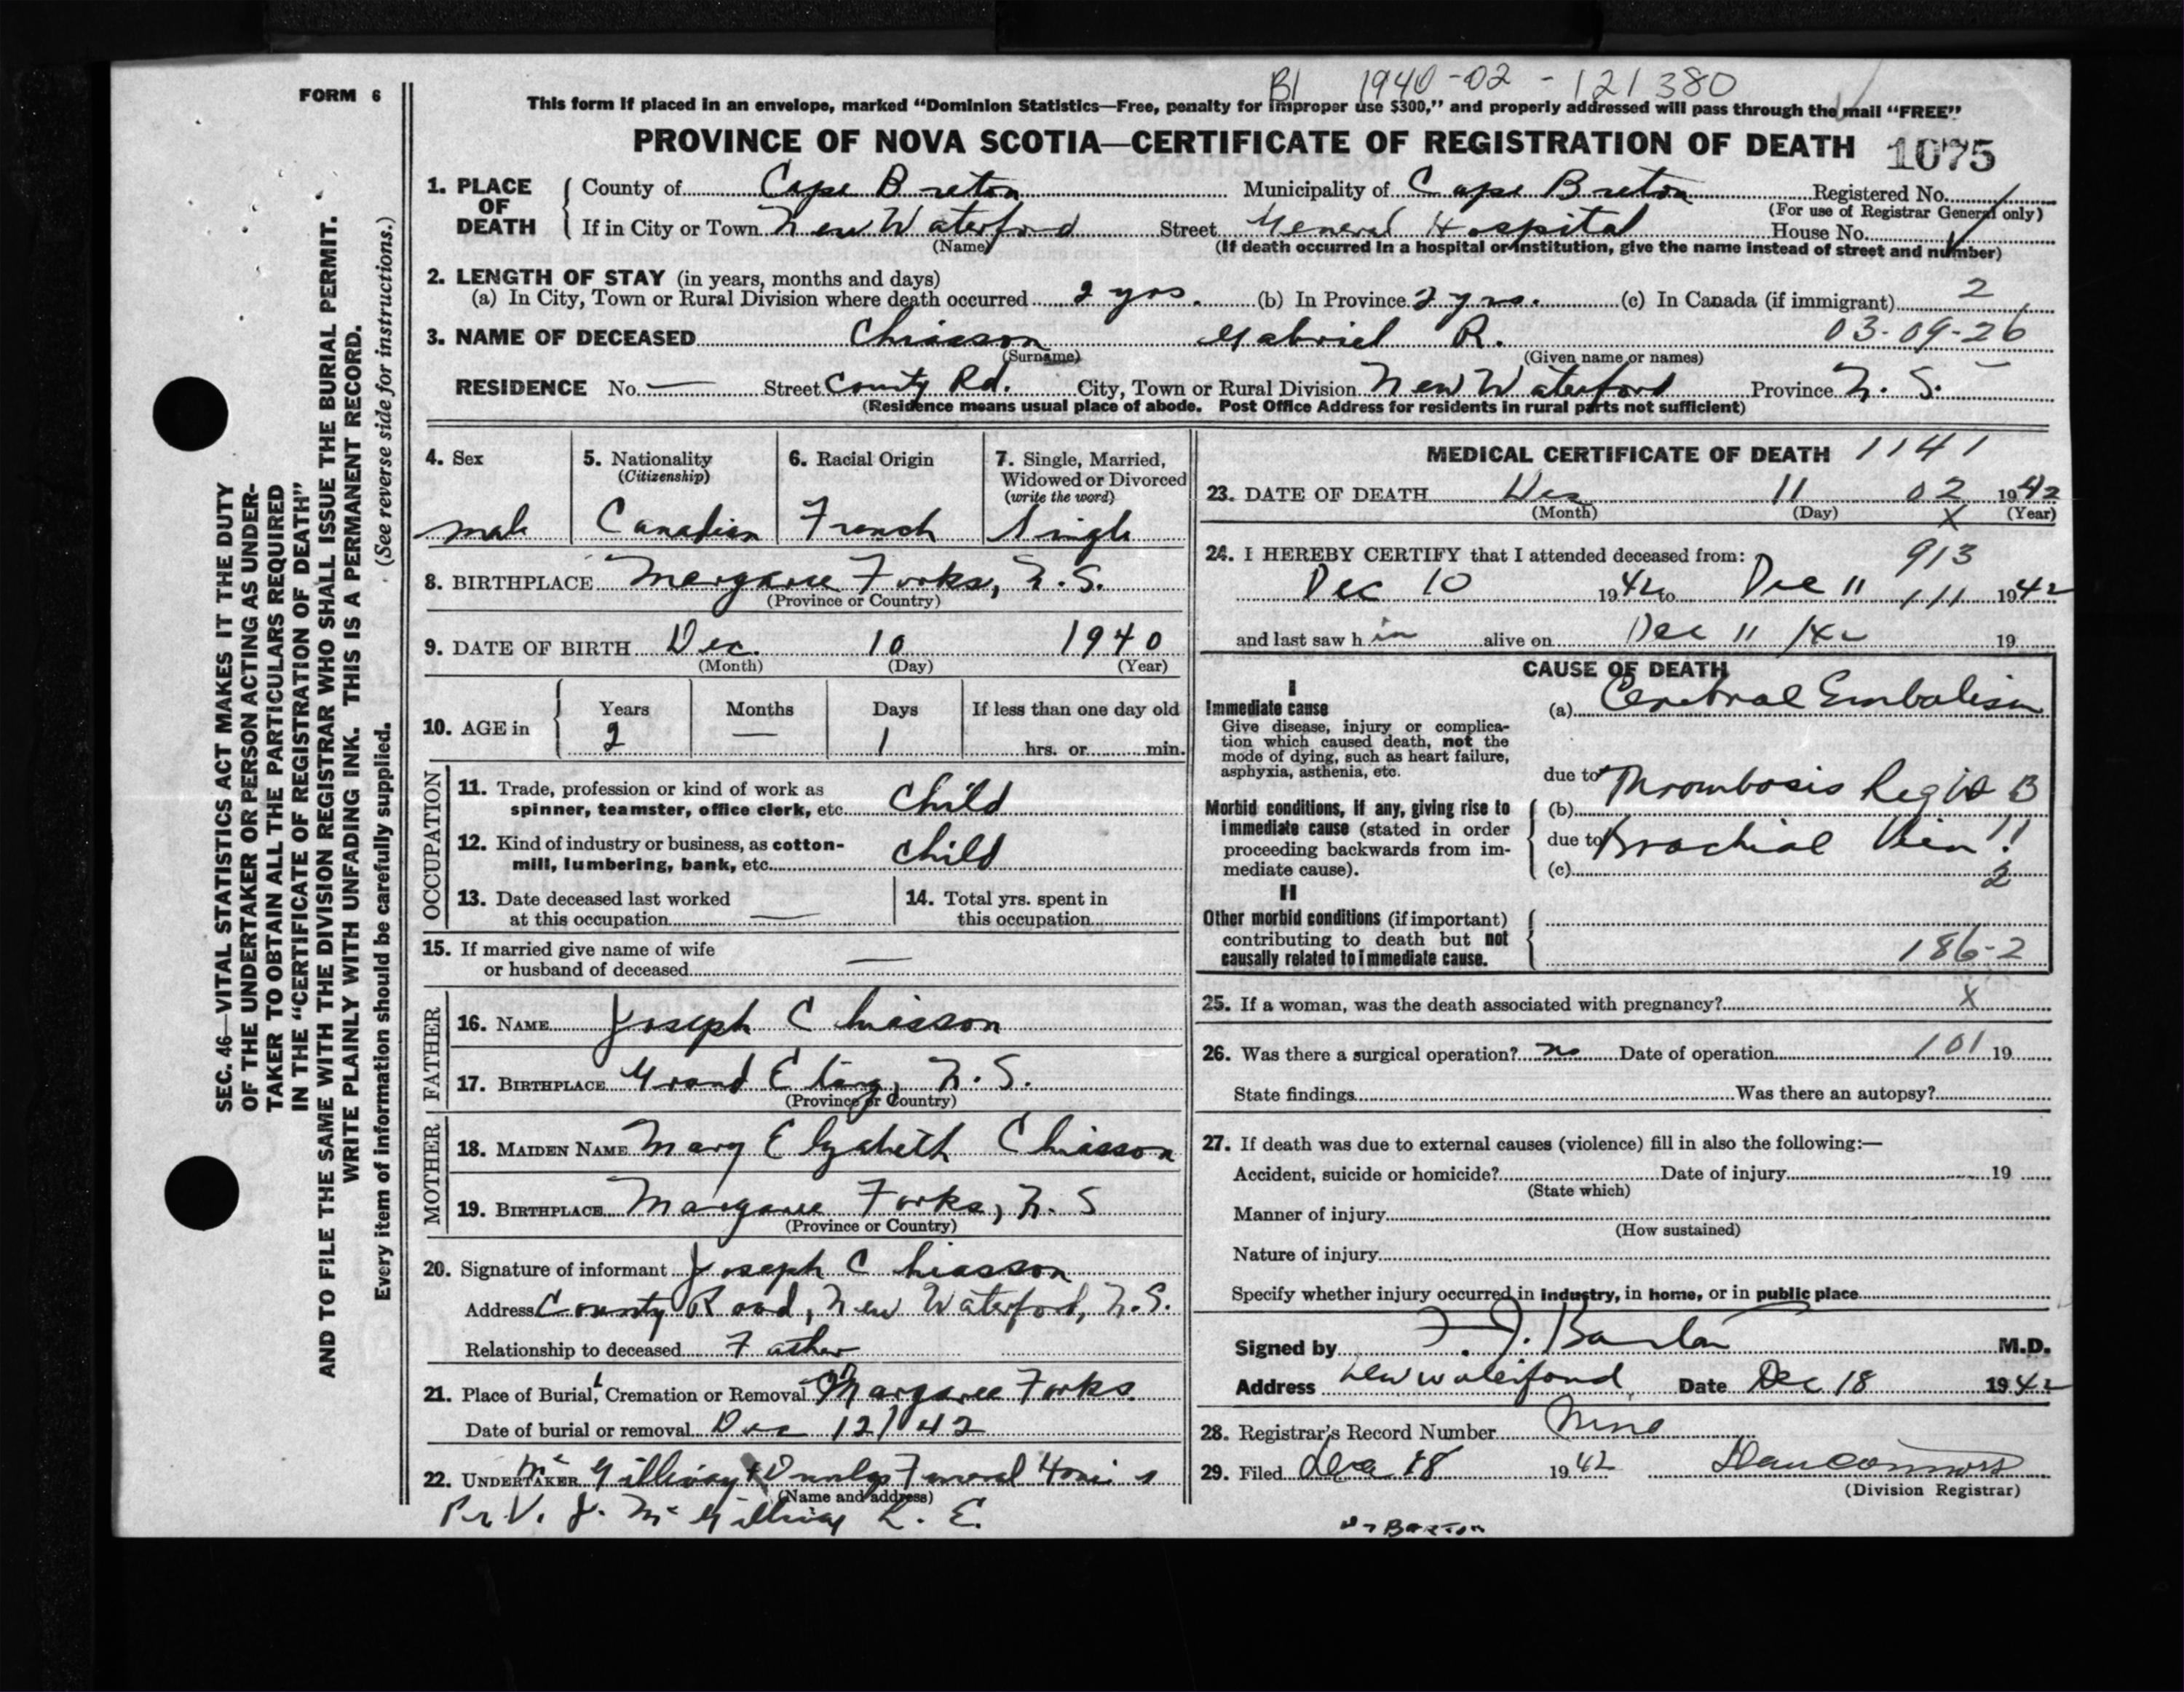 FORM 6
B1 1940-02-121380
This form if placed in an envelope, marked “Dominion Statistics—Free, penalty for improper use $300,” and properly addressed will pass through the mail “FREE”
PROVINCE OF NOVA SCOTIA—CERTIFICATE OF REGISTRATION OF DEATH 1075
1. PLACE OF DEATH
County of Cape Breton Municipality of Cape Breton Registered No.
(For use of Registrar General only)
If in City or Town New Waterford Street General Hospital House No.
(Name) (If death occurred in a hospital or institution, give the name instead of street and number)
2. LENGTH OF STAY (in years, months and days)
(a) In City, Town or Rural Division where death occurred 2 yrs. (b) In Province 2 yrs. (c) In Canada (if immigrant) 2
3. NAME OF DECEASED Chiasson Gabriel R. 03-09-26
(Surname) (Given name or names)
RESIDENCE No. — Street County Rd. City, Town or Rural Division New Waterford Province N. S.
(Residence means usual place of abode. Post Office Address for residents in rural parts not sufficient)
4. Sex
male
5. Nationality
(Citizenship)
Canadian
6. Racial Origin
French
7. Single, Married,
Widowed or Divorced
(write the word)
Single
8. BIRTHPLACE Margaree Forks, N.S.
(Province or Country)
9. DATE OF BIRTH Dec. 10 1940
(Month) (Day) (Year)
10. AGE in
Years Months Days If less than one day old
2 — 1 hrs. or min.
OCCUPATION
11. Trade, profession or kind of work as
spinner, teamster, office clerk, etc. Child
12. Kind of industry or business, as cotton-
mill, lumbering, bank, etc. Child
13. Date deceased last worked
at this occupation —
14. Total yrs. spent in
this occupation
15. If married give name of wife
or husband of deceased —
FATHER
16. NAME Joseph Chiasson
17. BIRTHPLACE Grand Etang, N.S.
(Province or Country)
MOTHER
18. MAIDEN NAME Mary Elizabeth Chiasson
19. BIRTHPLACE Margaree Forks, N. S
(Province or Country)
20. Signature of informant Joseph Chiasson
Address County Road, New Waterford, N.S.
Relationship to deceased Father
21. Place of Burial, Cremation or Removal Margaree Forks
Date of burial or removal Dec 12/42
22. UNDERTAKER McGillivray & Funeral
(Name and address)
Pr V. J. McGillivray L. E.
MEDICAL CERTIFICATE OF DEATH 1141
23. DATE OF DEATH Dec 11 02 1942
(Month) (Day) X (Year)
24. I HEREBY CERTIFY that I attended deceased from: 913
Dec 10 1942 to Dec 11 111 1942
and last saw h im alive on Dec 11 / 42 19
CAUSE OF DEATH
I
Immediate cause
Give disease, injury or complica-
tion which caused death, not the
mode of dying, such as heart failure,
asphyxia, asthenia, etc.
(a) Cerebral Embolism
due to Thrombosis B
Morbid conditions, if any, giving rise to
immediate cause (stated in order
proceeding backwards from im-
mediate cause).
(b)
due to Brachial Vein
(c) 2
II
Other morbid conditions (if important)
contributing to death but not
causally related to immediate cause.
186-2
25. If a woman, was the death associated with pregnancy? X
26. Was there a surgical operation? no Date of operation 101 19
State findings Was there an autopsy?
27. If death was due to external causes (violence) fill in also the following:—
Accident, suicide or homicide? Date of injury 19
(State which)
Manner of injury
(How sustained)
Nature of injury
Specify whether injury occurred in industry, in home, or in public place
Signed by F. J. Barton M.D.
Address New Waterford Date Dec 18 1942
28. Registrar's Record Number Nine
29. Filed Dec 18 1942 Dan Connors
(Division Registrar)
Dr BARTON
SEC. 46—VITAL STATISTICS ACT MAKES IT THE DUTY
OF THE UNDERTAKER OR PERSON ACTING AS UNDER-
TAKER TO OBTAIN ALL THE PARTICULARS REQUIRED
IN THE “CERTIFICATE OF REGISTRATION OF DEATH”
AND TO FILE THE SAME WITH THE DIVISION REGISTRAR WHO SHALL ISSUE THE BURIAL PERMIT.
WRITE PLAINLY WITH UNFADING INK. THIS IS A PERMANENT RECORD.
Every item of information should be carefully supplied. (See reverse side for instructions.)